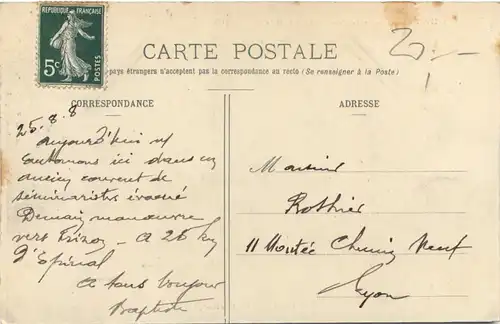 RÉPUBLIQUE FRANÇAISE
5c
POSTES
CARTE POSTALE
pays étrangers n'acceptent pas la correspondance au recto (Se renseigner à la Poste)
CORRESPONDANCE
25.8.8
aujourd'hui
ici dans un
ancien couvent de
séminaristes évacué
Demain manœuvre
vers - A 26 km
d'Epinal
A tous bonjour
Baptiste
ADRESSE
Monsieur
Rothier
11 Montée Chemin Neuf
Lyon